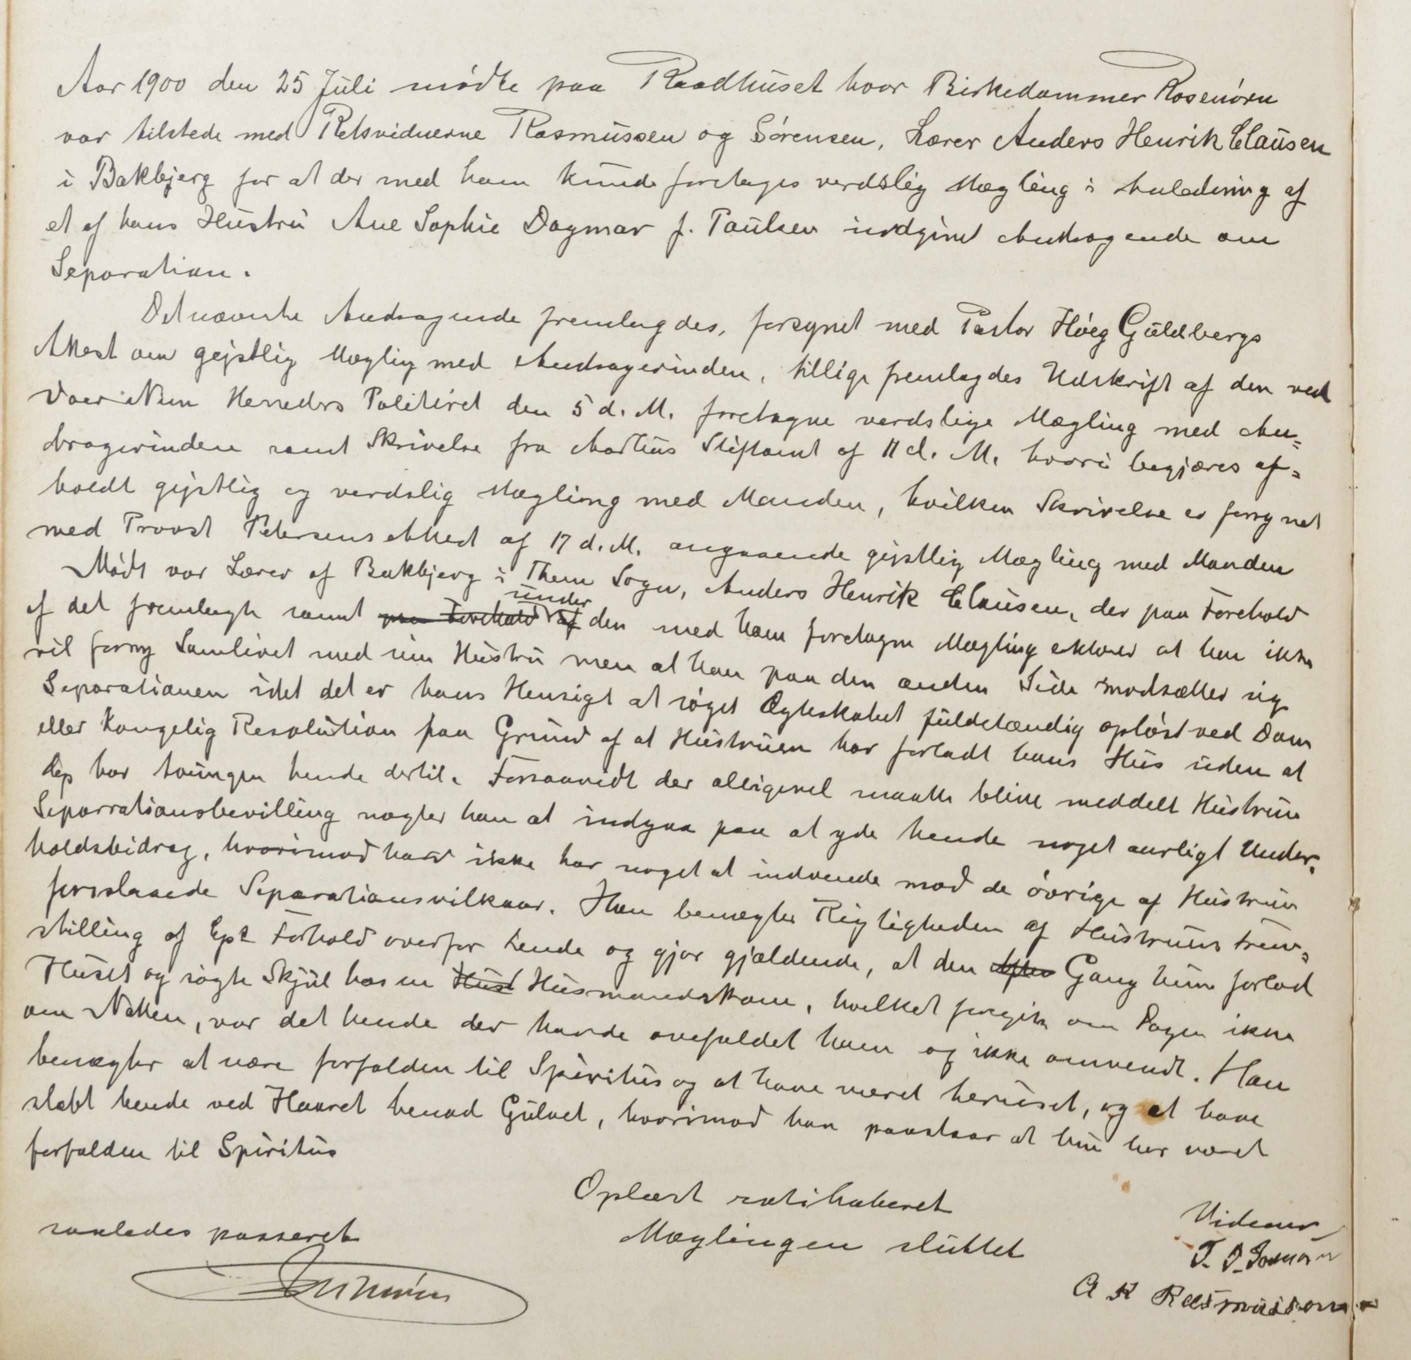 Aar 1900 den 25 Juli mødte paa Raadhuset hvor Birkedommer Rosenørn
var tilstede med Retsvidnerne Rasmussen og Sørensen, Lærer Anders Henrik Clausen
i Bakbjerg for at der med ham kunde foretages verdslig Mægling i Anledning af
et af hans Hustru Ane Sophie Dagmar f. Paulsen indgivet Andragende om
Separation.
Det nævnte Andragende fremlagdes, forsynet med Pastor Høeg Guldbergs
Attest om gejstlig Mægling med Andragerinden, tillige fremlagdes Udskrift af den ved
Voer Nim Herreders Politiret den 5 d. M. foretagne verdslige Mægling med An=
dragerinden samt Skrivelse fra Aarhus Stiftamt af 11 d. M. hvori begjæres af=
holdt gejstlig og verdslig Mægling med Manden, hvilken Skrivelse er forsynet
med Provst Petersens Attest af 17 d. M. angaaende gejstlig Mægling med Manden
Mødt var Lærer af Bakbjerg i Them Sogn, Anders Henrik Clausen, der paa Forehold
af det fremlagte samt paa Forehold af under den med ham foretagne Mægling erklærer at han ikke
vil forny Samlivet med sin Hustru men at han paa den anden Side modsætter sig
Separationen idet det er hans Hensigt at søget Ægteskabet fuldstændig opløst ved Dom
eller kongelig Resolution paa Grund af at Hustruen har forladt hans Hus uden at
dep har tvungen hende dertil. Forsaavidt der alligevel maatte blive meddelt Hustruen
Separrationsbevilling nægter han at indgaa paa at yde hende noget aarligt Under=
holdsbidrag, hvorimod han ikke har noget at indvende mod de øvrige af Hustruen
foreslaaede Separationsvilkaar. Han benægter Rigtigheden af Hustruens Frem=
stilling af Epts Forhold overfor hende og gjør gjældende, at den Gang hun forlod
Huset og søgte Skjul hos en Hus Husmandskone, hvilket foregik om Dagen ikke
om Natten, var det hende der havde overfaldet ham og ikke omvendt. Han
benægter at være forfalden til Spiritus og at have været beruset, og at have
slæbt hende ved Haaret henad Gulvet, hvorimod han paastaar at hun har været
forfalden til Spiritus
Oplæst ratihaberet
Mæglingen sluttet
saaledes passeret
Rosenørn
Vidner
A K Rasmussen